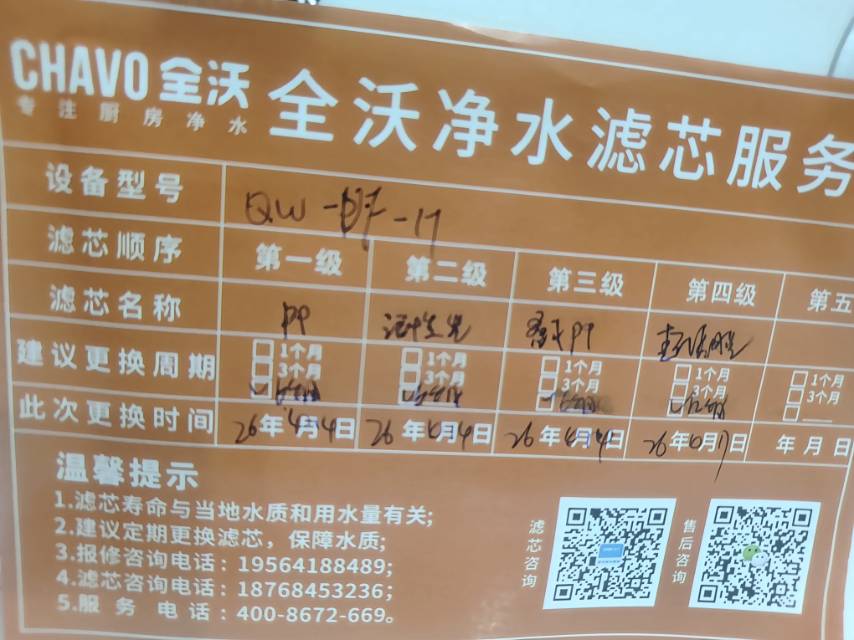 CHAVO 全沃
专注厨房净水
全沃净水滤芯服务
设备型号 QW
滤芯顺序 第一级 第二级 第三级 第四级 第五
滤芯名称 PP
建议更换周期 1个月 1个月 1个月 1个月 1个月
3个月 3个月 3个月 3个月 3个月
此次更换时间 26年4月4日 26年4月4日 26年4月4日 26年 月 日 年 月 日
温馨提示
1.滤芯寿命与当地水质和用水量有关;
2.建议定期更换滤芯，保障水质;
3.报修咨询电话:19564188489;
4.滤芯咨询电话:18768453236;
5.服务电话:400-8672-669。
滤芯咨询
售后咨询